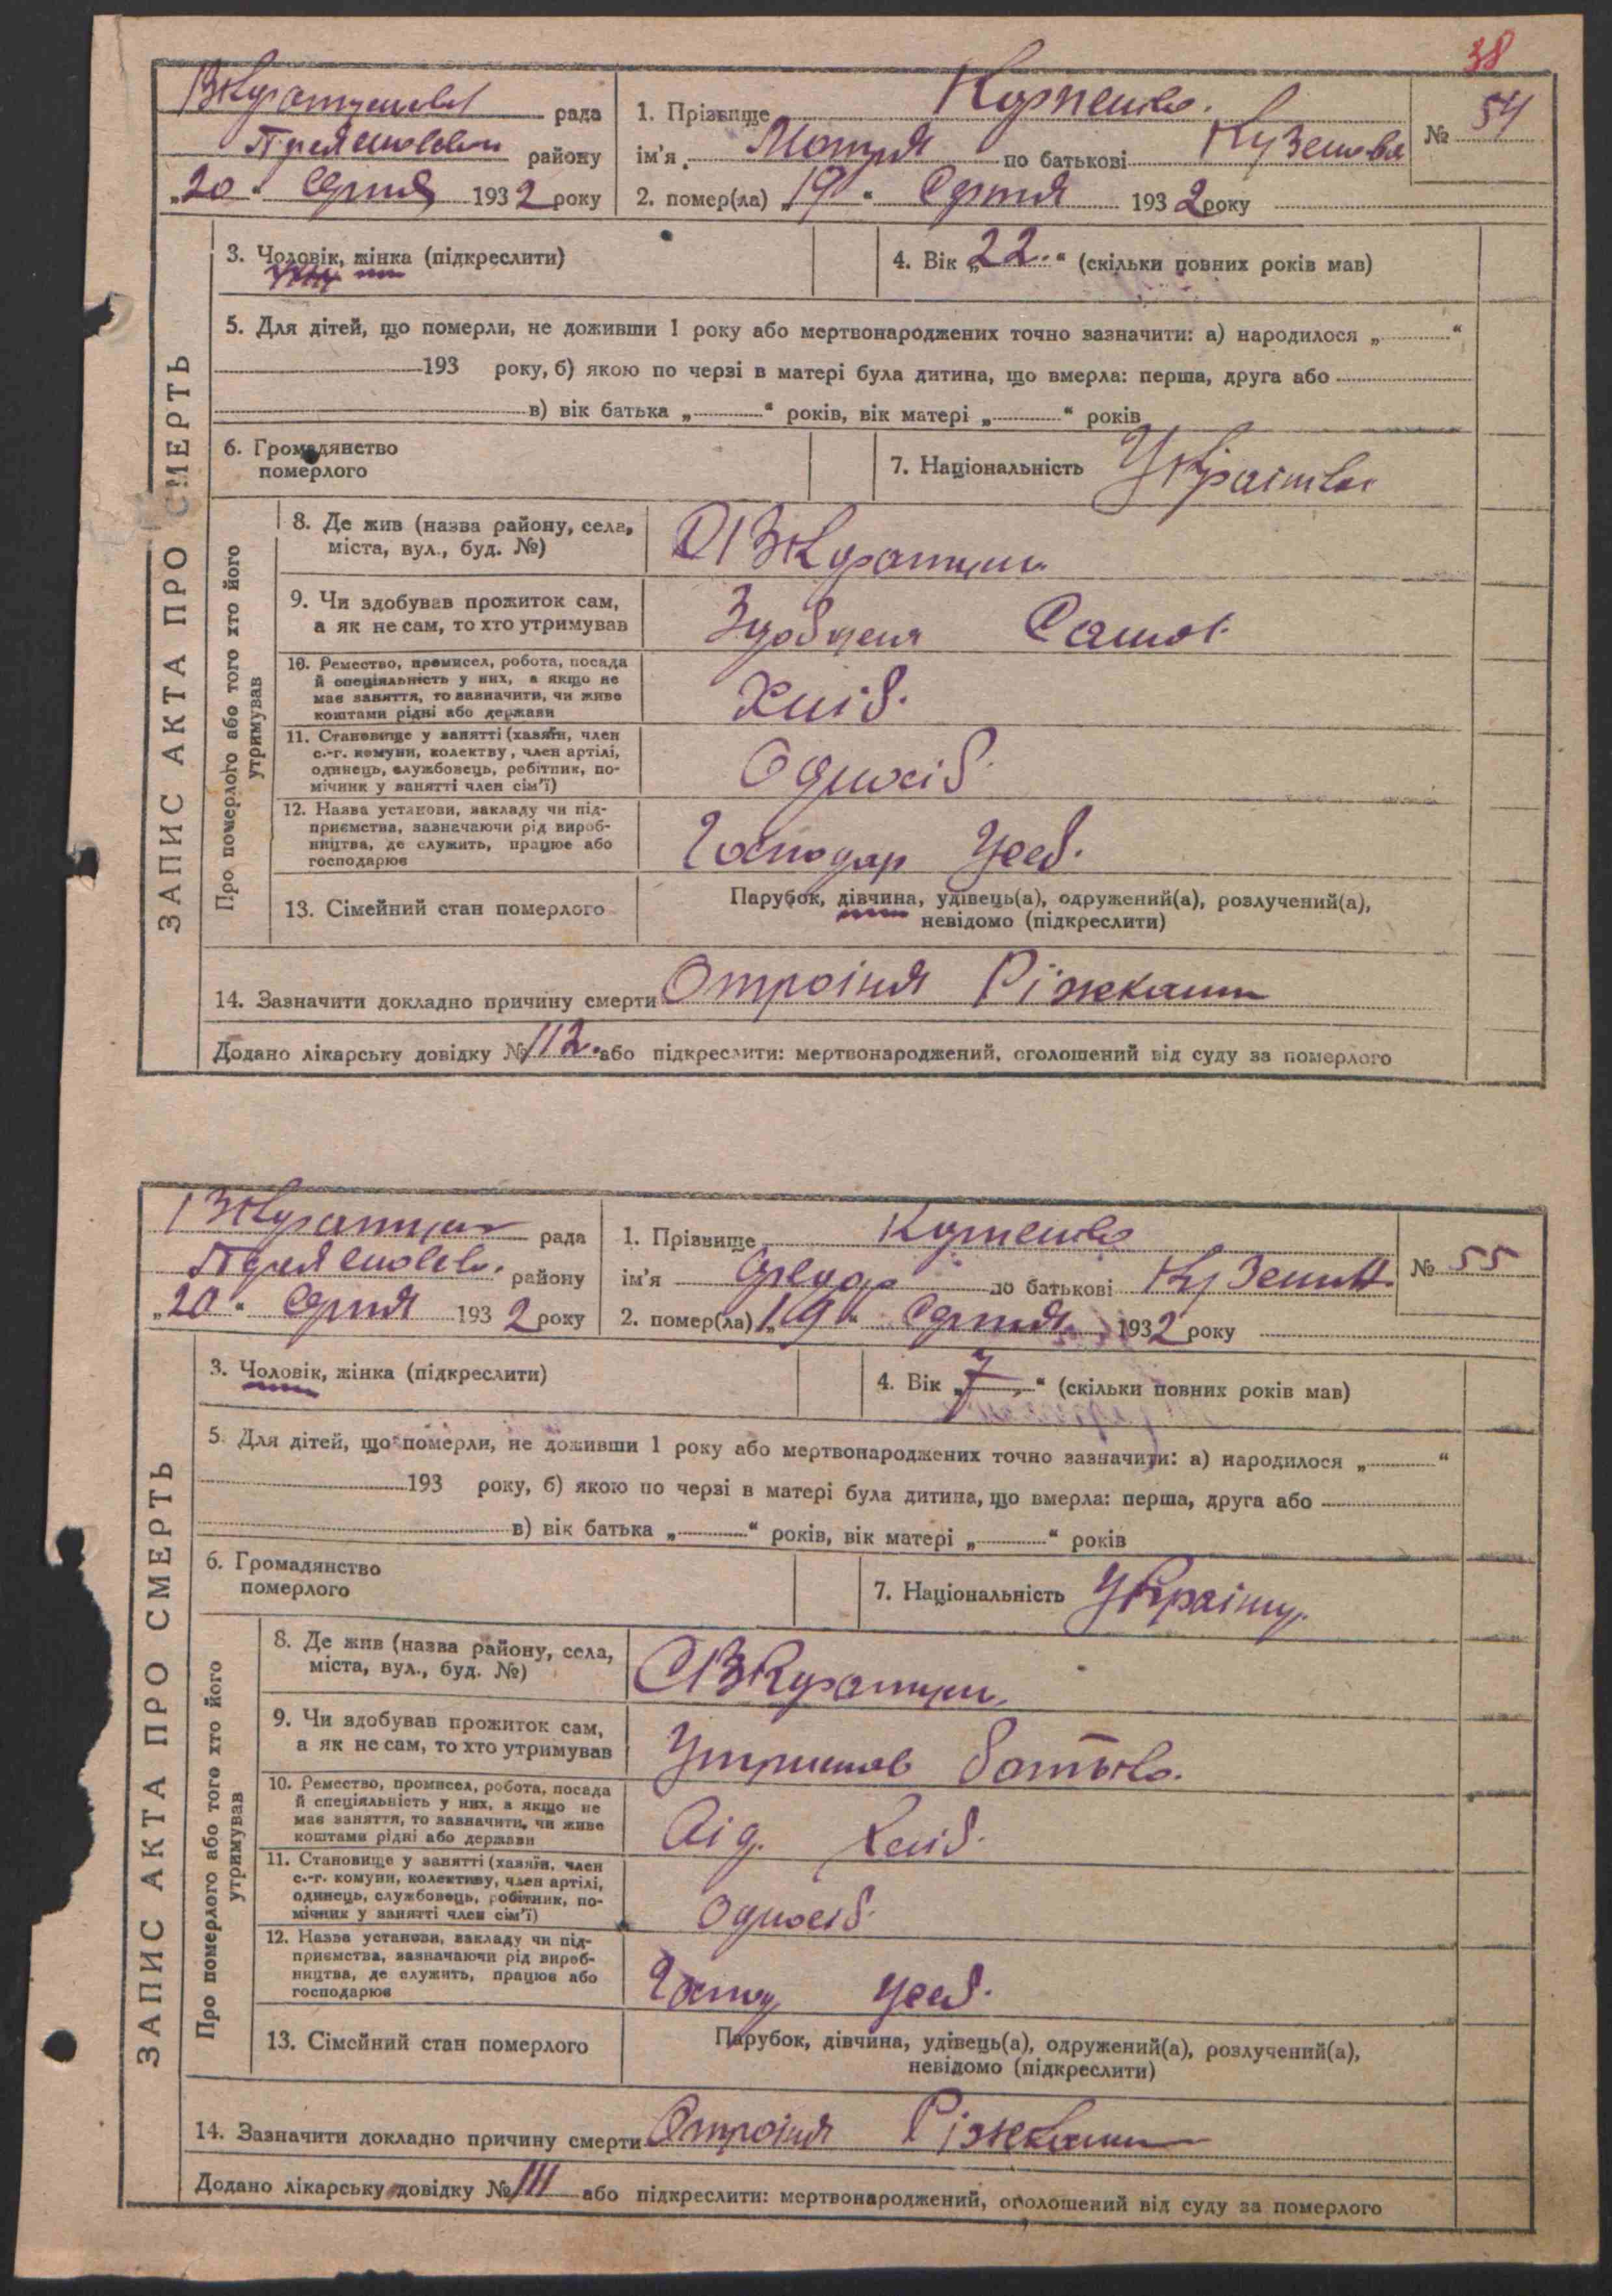 38
рада
району
„20“ Серпня 1932 року
1. Прізвище
ім'я Мотря по батькові
№ 54
2. помер(ла) „19“ Серпня 1932 року
ЗАПИС АКТА ПРО СМЕРТЬ
3. Чоловік, жінка (підкреслити)
4. Вік „22.“ (скільки повних років мав)
5. Для дітей, що померли, не доживши 1 року або мертвонароджених точно зазначити: а) народилося „ “
193 року, б) якою по черзі в матері була дитина, що вмерла: перша, друга або
в) вік батька „ “ років, вік матері „ “ років
6. Громадянство
померлого
7. Національність
Про померлого або того хто його
утримував
8. Де жив (назва району, села,
міста, вул., буд. №)
9. Чи здобував прожиток сам,
а як не сам, то хто утримував
Сама
10. Ремество, промисел, робота, посада
й спеціяльність у них, а якщо не
має заняття, то зазначити, чи живе
коштами рідні або держави
Хліб.
11. Становище у занятті (хазяїн, член
с.-г. комуни, колектву, член артілі,
одинець, службовець, робітник, по-
мічник у занятті член сім'ї)
Односіб.
12. Назва установи, закладу чи під-
приємства, зазначаючи рід вироб-
ництва, де служить, працює або
господарює
Господар
13. Сімейний стан померлого
Парубок, дівчина, удівець(а), одружений(а), розлучений(а),
невідомо (підкреслити)
14. Зазначити докладно причину смерти Отроіня Ріжками
Додано лікарську довідку № 112. або підкреслити: мертвонароджений, оголошений від суду за померлого
рада
району
„20“ Серпня 1932 року
1. Прізвище
ім'я по батькові
№ 55
2. помер(ла) „19“ Серпня 1932 року
ЗАПИС АКТА ПРО СМЕРТЬ
3. Чоловік, жінка (підкреслити)
4. Вік „7“ (скільки повних років мав)
5. Для дітей, що померли, не доживши 1 року або мертвонароджених точно зазначити: а) народилося „ “
193 року, б) якою по черзі в матері була дитина, що вмерла: перша, друга або
в) вік батька „ “ років, вік матері „ “ років
6. Громадянство
померлого
7. Національність
Про померлого або того хто його
утримував
8. Де жив (назва району, села,
міста, вул., буд. №)
9. Чи здобував прожиток сам,
а як не сам, то хто утримував
Утримував батько.
10. Ремество, промисел, робота, посада
й спеціяльність у них, а якщо не
має заняття, то зазначити, чи живе
коштами рідні або держави
Хліб.
11. Становище у занятті (хазяїн, член
с.-г. комуни, колективу, член артілі,
одинець, службовець, робітник, по-
мічник у занятті член сім'ї)
Односіб.
12. Назва установи, закладу чи під-
приємства, зазначаючи рід вироб-
ництва, де служить, працює або
господарює
13. Сімейний стан померлого
Парубок, дівчина, удівець(а), одружений(а), розлучений(а),
невідомо (підкреслити)
14. Зазначити докладно причину смерти Отроіня Ріжками
Додано лікарську довідку № 111 або підкреслити: мертвонароджений, оголошений від суду за померлого